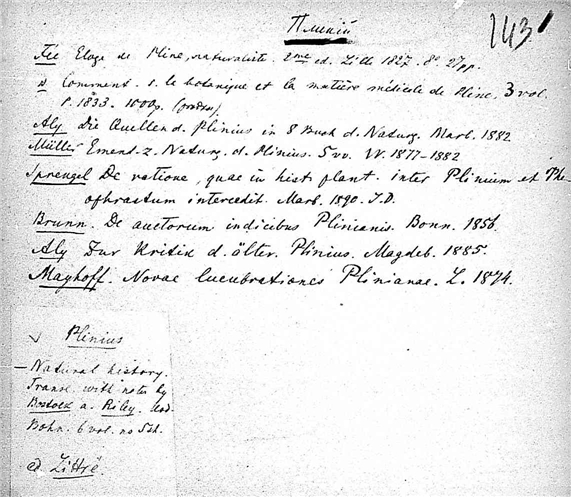 Плиній
143
Fée Eloge de Pline, naturaliste. 2me ed. Lille 1827. 8°. 27 pp.
Comment. s. la botanique et la matière médicale de Pline. 3 vol.
P. 1833. 1000 g.
Aly Die Quellen d. Plinius in 8 Buch d. Naturg. Marb. 1882
Müller Emend. z. Naturg. d. Plinius. 5 vv. W. 1877-1882
Sprengel De ratione, quae in hist. plant. inter Plinium et The-
ophrastum intercedit. Marb. 1890. I.D.
Brunn. De auctorum indicibus Plinianis. Bonn. 1856.
Aly Zur Kritik d. älter. Plinius. Magdeb. 1885.
Mayhoff. Novae lucubrationes Plinianae. L. 1874.
Plinius
– Natural history.
Transl. with notes by
Bostock a. Riley. Lond.
Bohn. 6 vol. no 5 sh.
ed Littré.